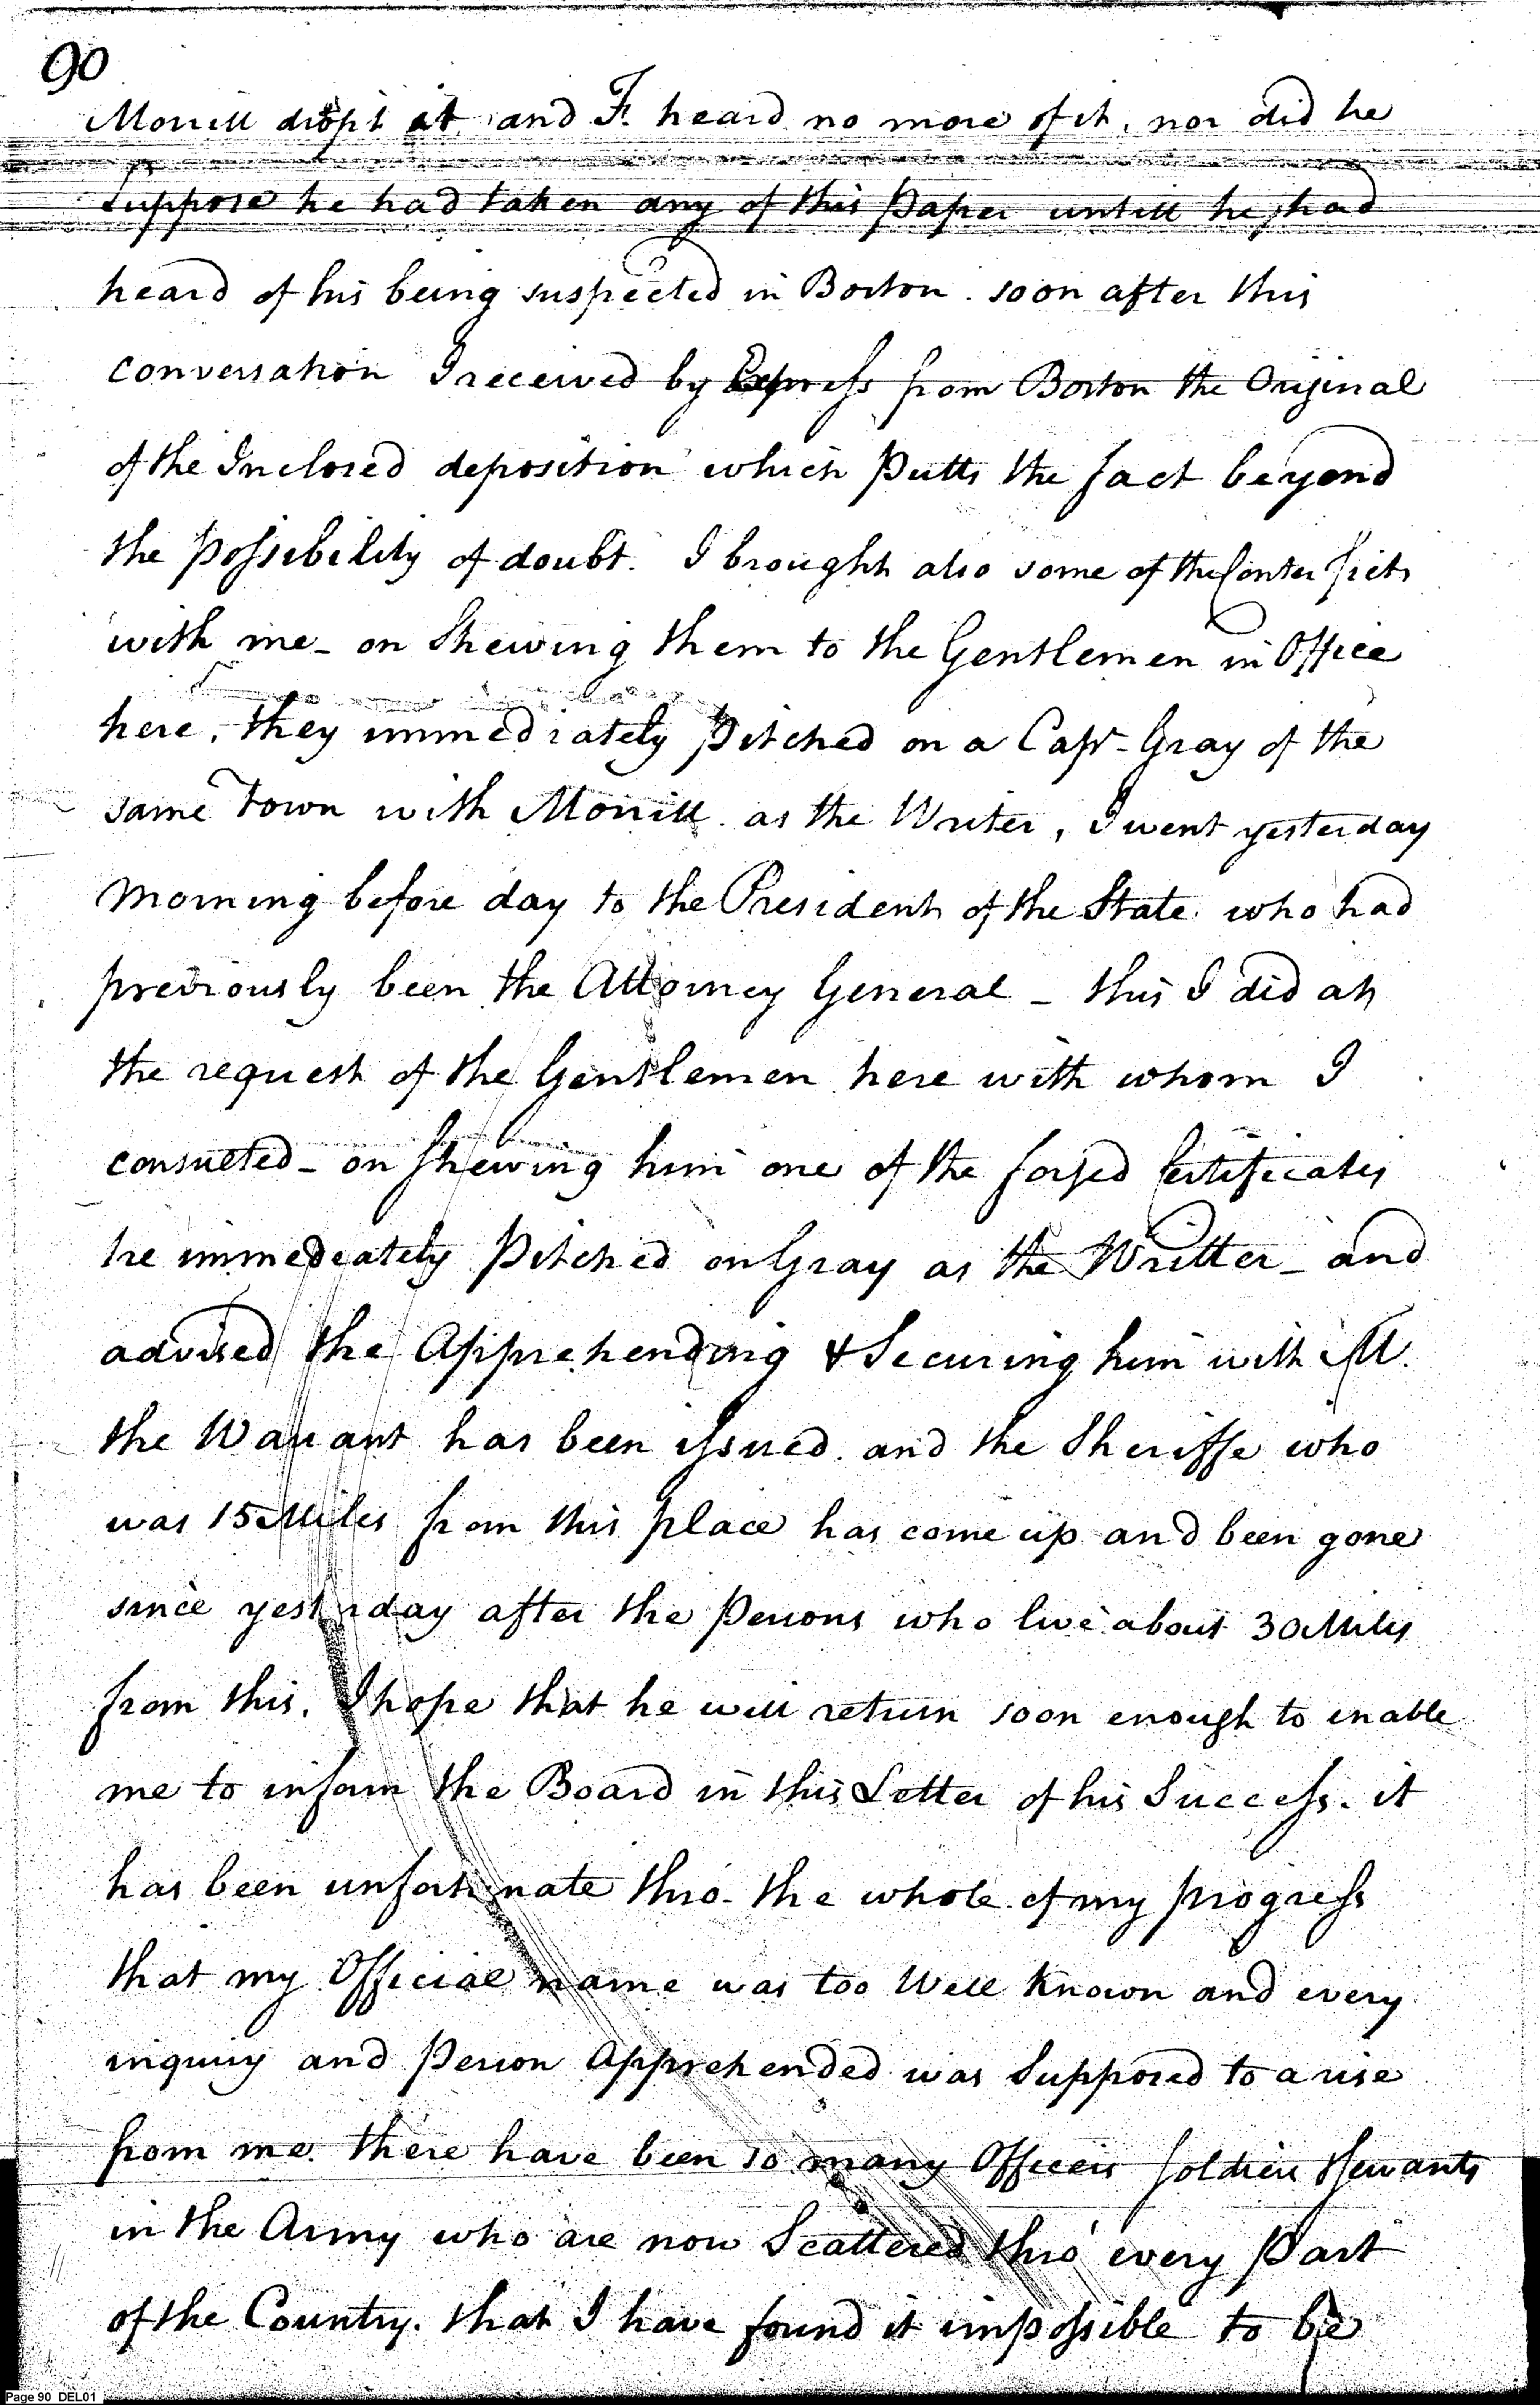 90
Morrill dropt it, and F. heard no more of it, nor did he
suppose he had taken any of this Paper untill he had
heard of his being suspected in Boston. soon after this
conversation I received by Express from Boston the Original
of the Inclosed deposition which Putts the fact beyond
the Possibility of doubt. I brought also some of the Conterfiets
with me_ on Shewing them to the Gentlemen in Office
here, they immediately Pitched on a Capt. Gray of the
same Town with Morrill as the Writer, I went yesterday
Morning before day to the President of the State who had
previously been the Attorney General _ this I did at
the request of the Gentlemen here with whom I
consulted_ on Shewing him one of the forged Certificates
he immedeately Pitched on Gray as the Writter_ and
advised the Apprehending & Securing him with M.
the Warrant has been issued and the Sheriffe who
was 15 Miles from this place has come up and been gone
since yesterday after the Persons who live about 30 Miles
from this. I hope that he will return soon enough to enable
me to inform the Board in this Letter of his Success. it
has been unfortunate thro. the whole of my progress
that my Official name was too Well known and every
inquiry and Person Apprehended was Supposed to arise
from me. there have been so many Officers Soldiers Servants
in the Army who are now Scattered thro' every Part
of the Country. that I have found it impossible to be
Page 90 DEL01